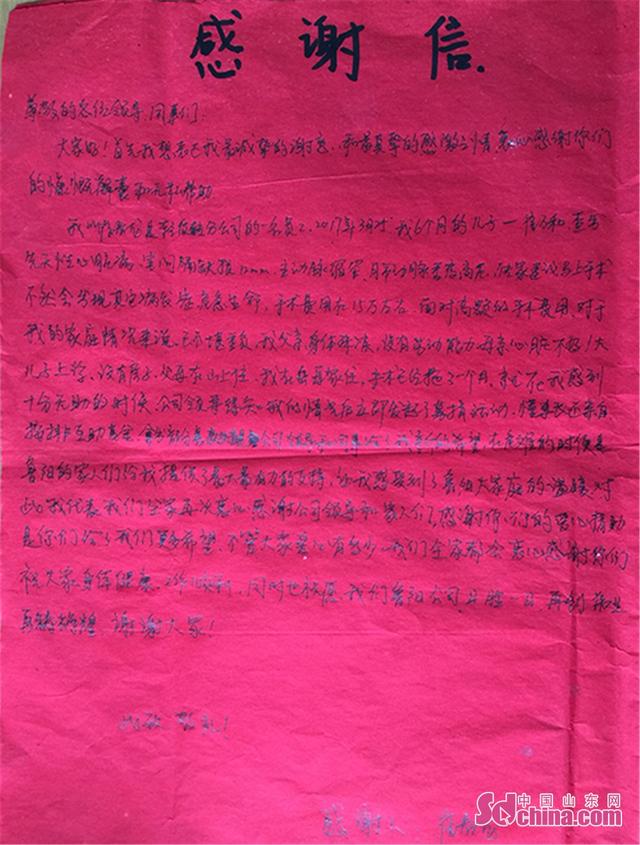 感谢信.
尊敬的各位领导、同事们:
大家好!首先我想表达我最诚挚的谢意,和最真挚的感激之情衷心感谢你们
的慷慨解囊和无私帮助.
我叫 是 分公司的一名员工,2017年3月才6个月的儿子 查出
先天性心脏病,室间隔缺损12mm.主动脉 月市动脉 高压,大家建议马上手术
不然会出现其它 危急生命,手术费用在15万左右.面对高额的手术费用,对于
我的家庭情况来说,已不堪重负,我父亲身体 没有劳动能力母亲心脏不好,大
儿子上学,没有房子,父母在山上住,我在 租住,手术已经拖了一个月,就在我感到
十分无助的时候,公司领导得知我的情况后立即发起了募捐活动,
互助基金, 公司领导和同事给了我 的希望,在危难的时候是
鲁阳的家人们给我提供了最大最有力的支持,让我感受到了鲁阳大家庭的温暖,对
此我代表我们全家再次衷心感谢公司领导和家人们,感谢你们的爱心捐助
是你们给了我们更多希望,不管大家爱心有多少,我们全家都会衷心感谢你们
祝大家身体健康,工作顺利,同时也祝愿我们鲁阳公司 再创
再铸辉煌 谢谢大家!
此致 敬礼!
感谢人
中国山东网
Sdchina.com